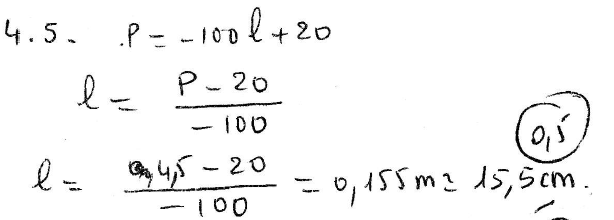 4.5. P = -100l + 20
l = (P - 20) / -100
0,5
l = (4,5 - 20) / -100 = 0,155 m = 15,5 cm.